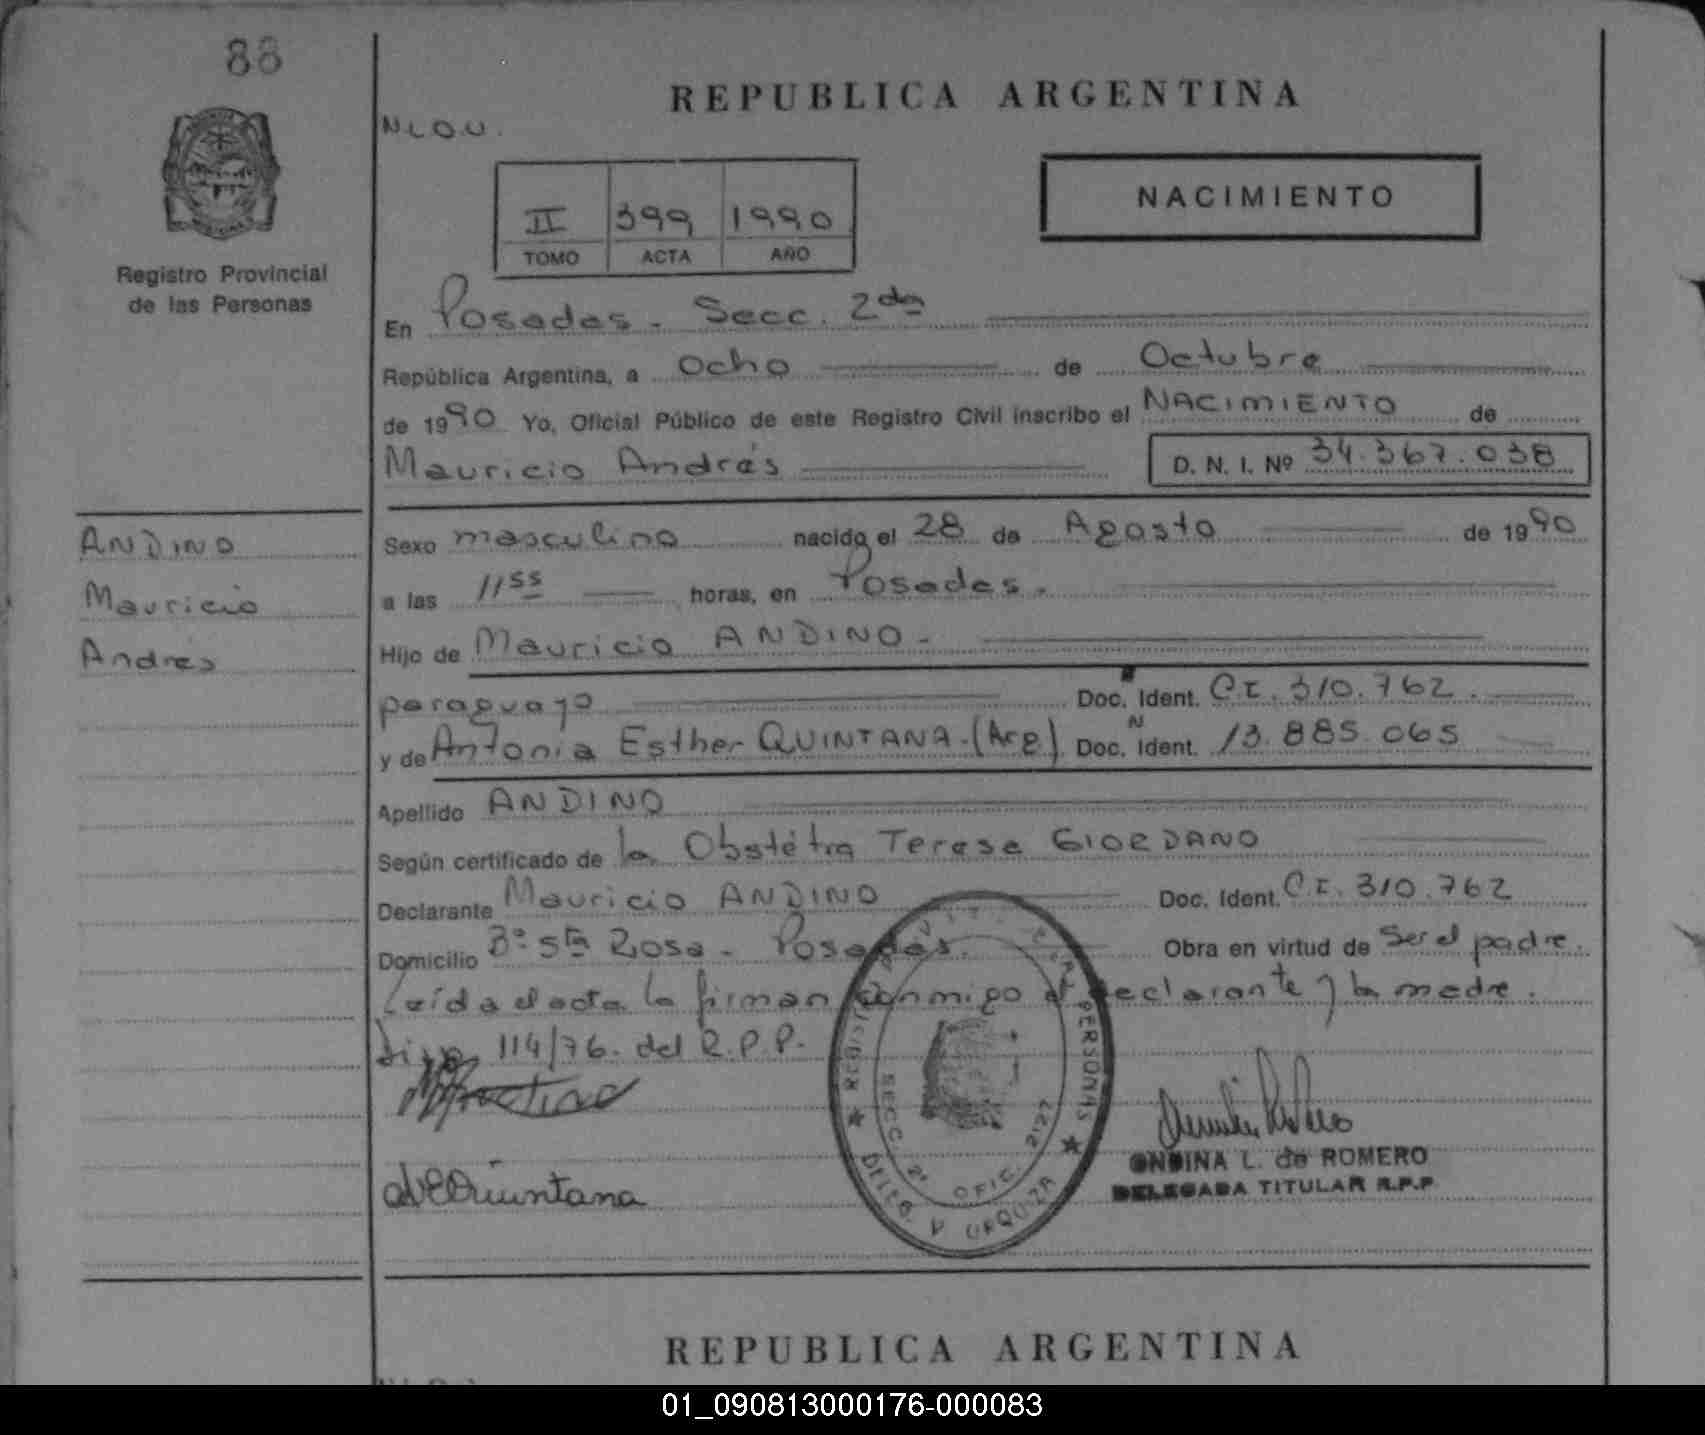 88
REPUBLICA ARGENTINA
N.L.O.U.
NACIMIENTO
II 399 1990
TOMO ACTA AÑO
Registro Provincial
de las Personas
En Posadas - Secc. 2da
República Argentina, a Ocho de Octubre
de 1990 Yo, Oficial Público de este Registro Civil inscribo el NACIMIENTO de
Mauricio Andrés D. N. I. Nº 34.367.038
ANDINO
Mauricio
Andrés
Sexo masculino nacido el 28 de Agosto de 1990
a las 11 55 horas, en Posadas.
Hijo de Mauricio ANDINO -
paraguayo Doc. Ident. C.I. 310.762.
y de Antonia Esther QUINTANA.(Arg) Doc. N Ident. 13.885.065
Apellido ANDINO
Según certificado de la Obstétra Teresa GIORDANO
Declarante Mauricio ANDINO Doc. Ident. C.I. 310.762
Domicilio Bº Sta Rosa - Posadas. Obra en virtud de Ser el padre.
Leída el acta la firman conmigo el declarante y la madre.
Disp. 114/76. del R.P.P.
AEQuintana
REGIST PERSONAS
SECC. 2ª OFIC. 2127
DELEG. V URQUIZA
ONDINA L. de ROMERO
DELEGADA TITULAR R.P.P
REPUBLICA ARGENTINA
01_090813000176-000083